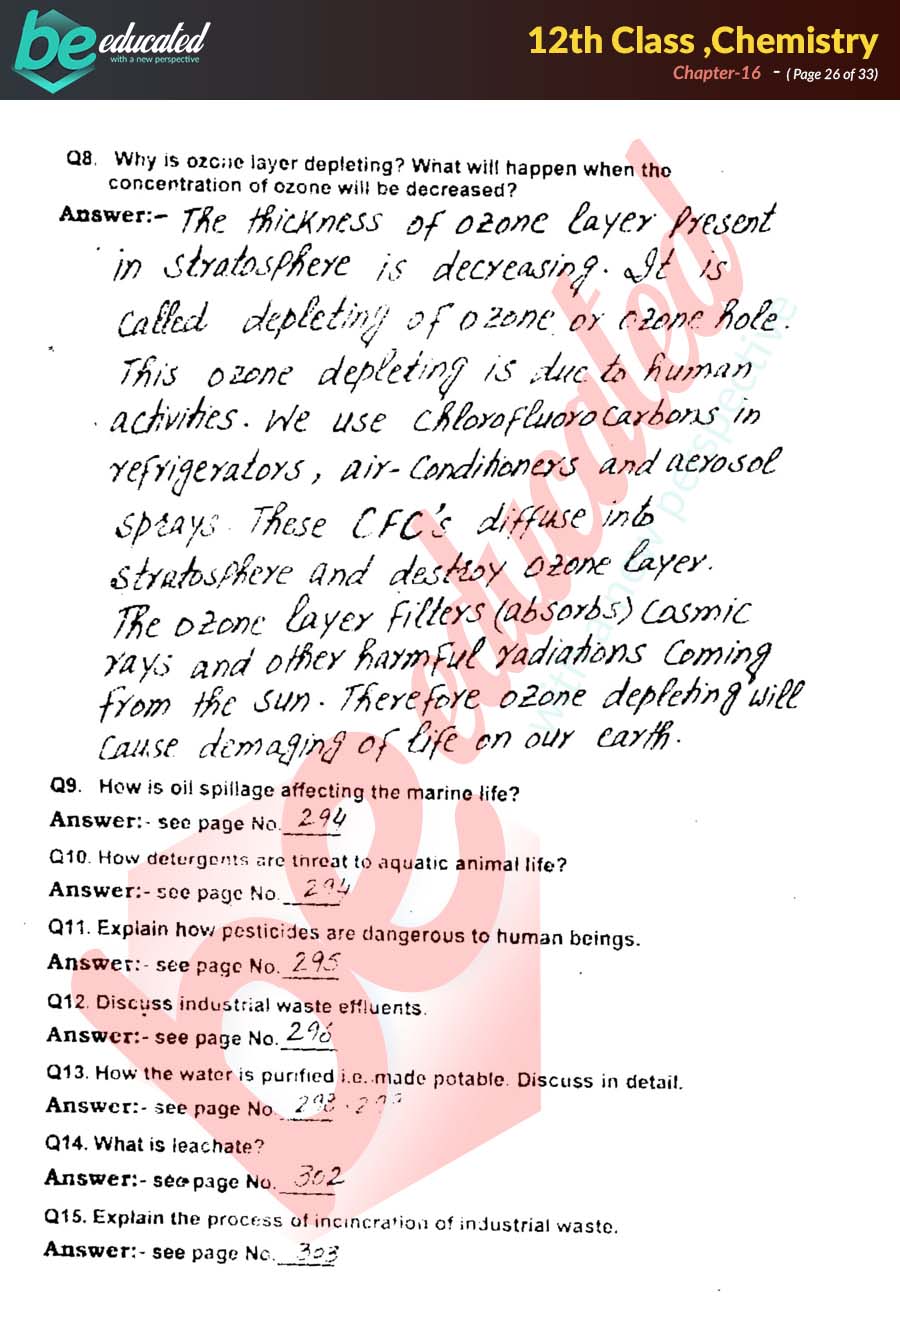 be educated
with a new perspective
12th Class ,Chemistry
Chapter-16 - ( Page 26 of 33)
Q8. Why is ozone layer depleting? What will happen when the
concentration of ozone will be decreased?
Answer:- The thickness of ozone layer present
in stratosphere is decreasing. It is
called depleting of ozone or ozone hole.
This ozone depleting is due to human
activities. We use chlorofluorocarbons in
refrigerators, air-conditioners and aerosol
sprays. These CFC's diffuse into
stratosphere and destroy ozone layer.
The ozone layer filters (absorbs) cosmic
rays and other harmful radiations coming
from the sun. Therefore ozone depleting will
cause demaging of life on our earth.
Q9. How is oil spillage affecting the marine life?
Answer:- see page No. 294
Q10. How detergents are threat to aquatic animal life?
Answer:- see page No. 294
Q11. Explain how pesticides are dangerous to human beings.
Answer:- see page No. 295
Q12. Discuss industrial waste effluents.
Answer:- see page No. 296
Q13. How the water is purified i.e. made potable. Discuss in detail.
Answer:- see page No 298
Q14. What is leachate?
Answer:- see page No. 302
Q15. Explain the process of incineration of industrial waste.
Answer:- see page No. 303
be educated
with a new perspective